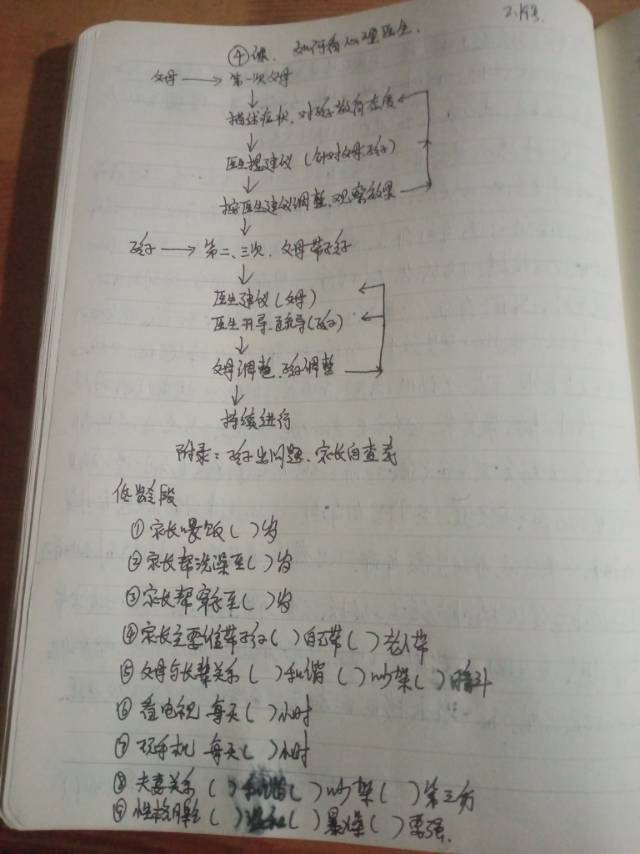 ④课. 如何看心理医生.
父母 → 第一次父母
↓
描述症状. 对孩子教育态度
↓
医生提建议 (针对父母.孩子)
↓
按医生建议调整.观察效果
↓
孩子 → 第二、三次. 父母带孩子
↓
医生建议(父母)
医生开导.疏导(孩子)
↓
父母调整.孩子调整
↓
持续进行
附录: 孩子出问题. 家长自查表
低龄段
①家长喂饭( )岁
②家长帮洗澡至( )岁
③家长帮穿衣至( )岁
④家长主要谁带孩子( )自己带( )老人带
⑤父母与长辈关系( )和谐( )吵架( )暗斗
⑥看电视 每天( )小时
⑦玩手机 每天( )小时
⑧夫妻关系( )和谐( )吵架( )第三方
⑨性格( )温和( )暴躁( )要强.